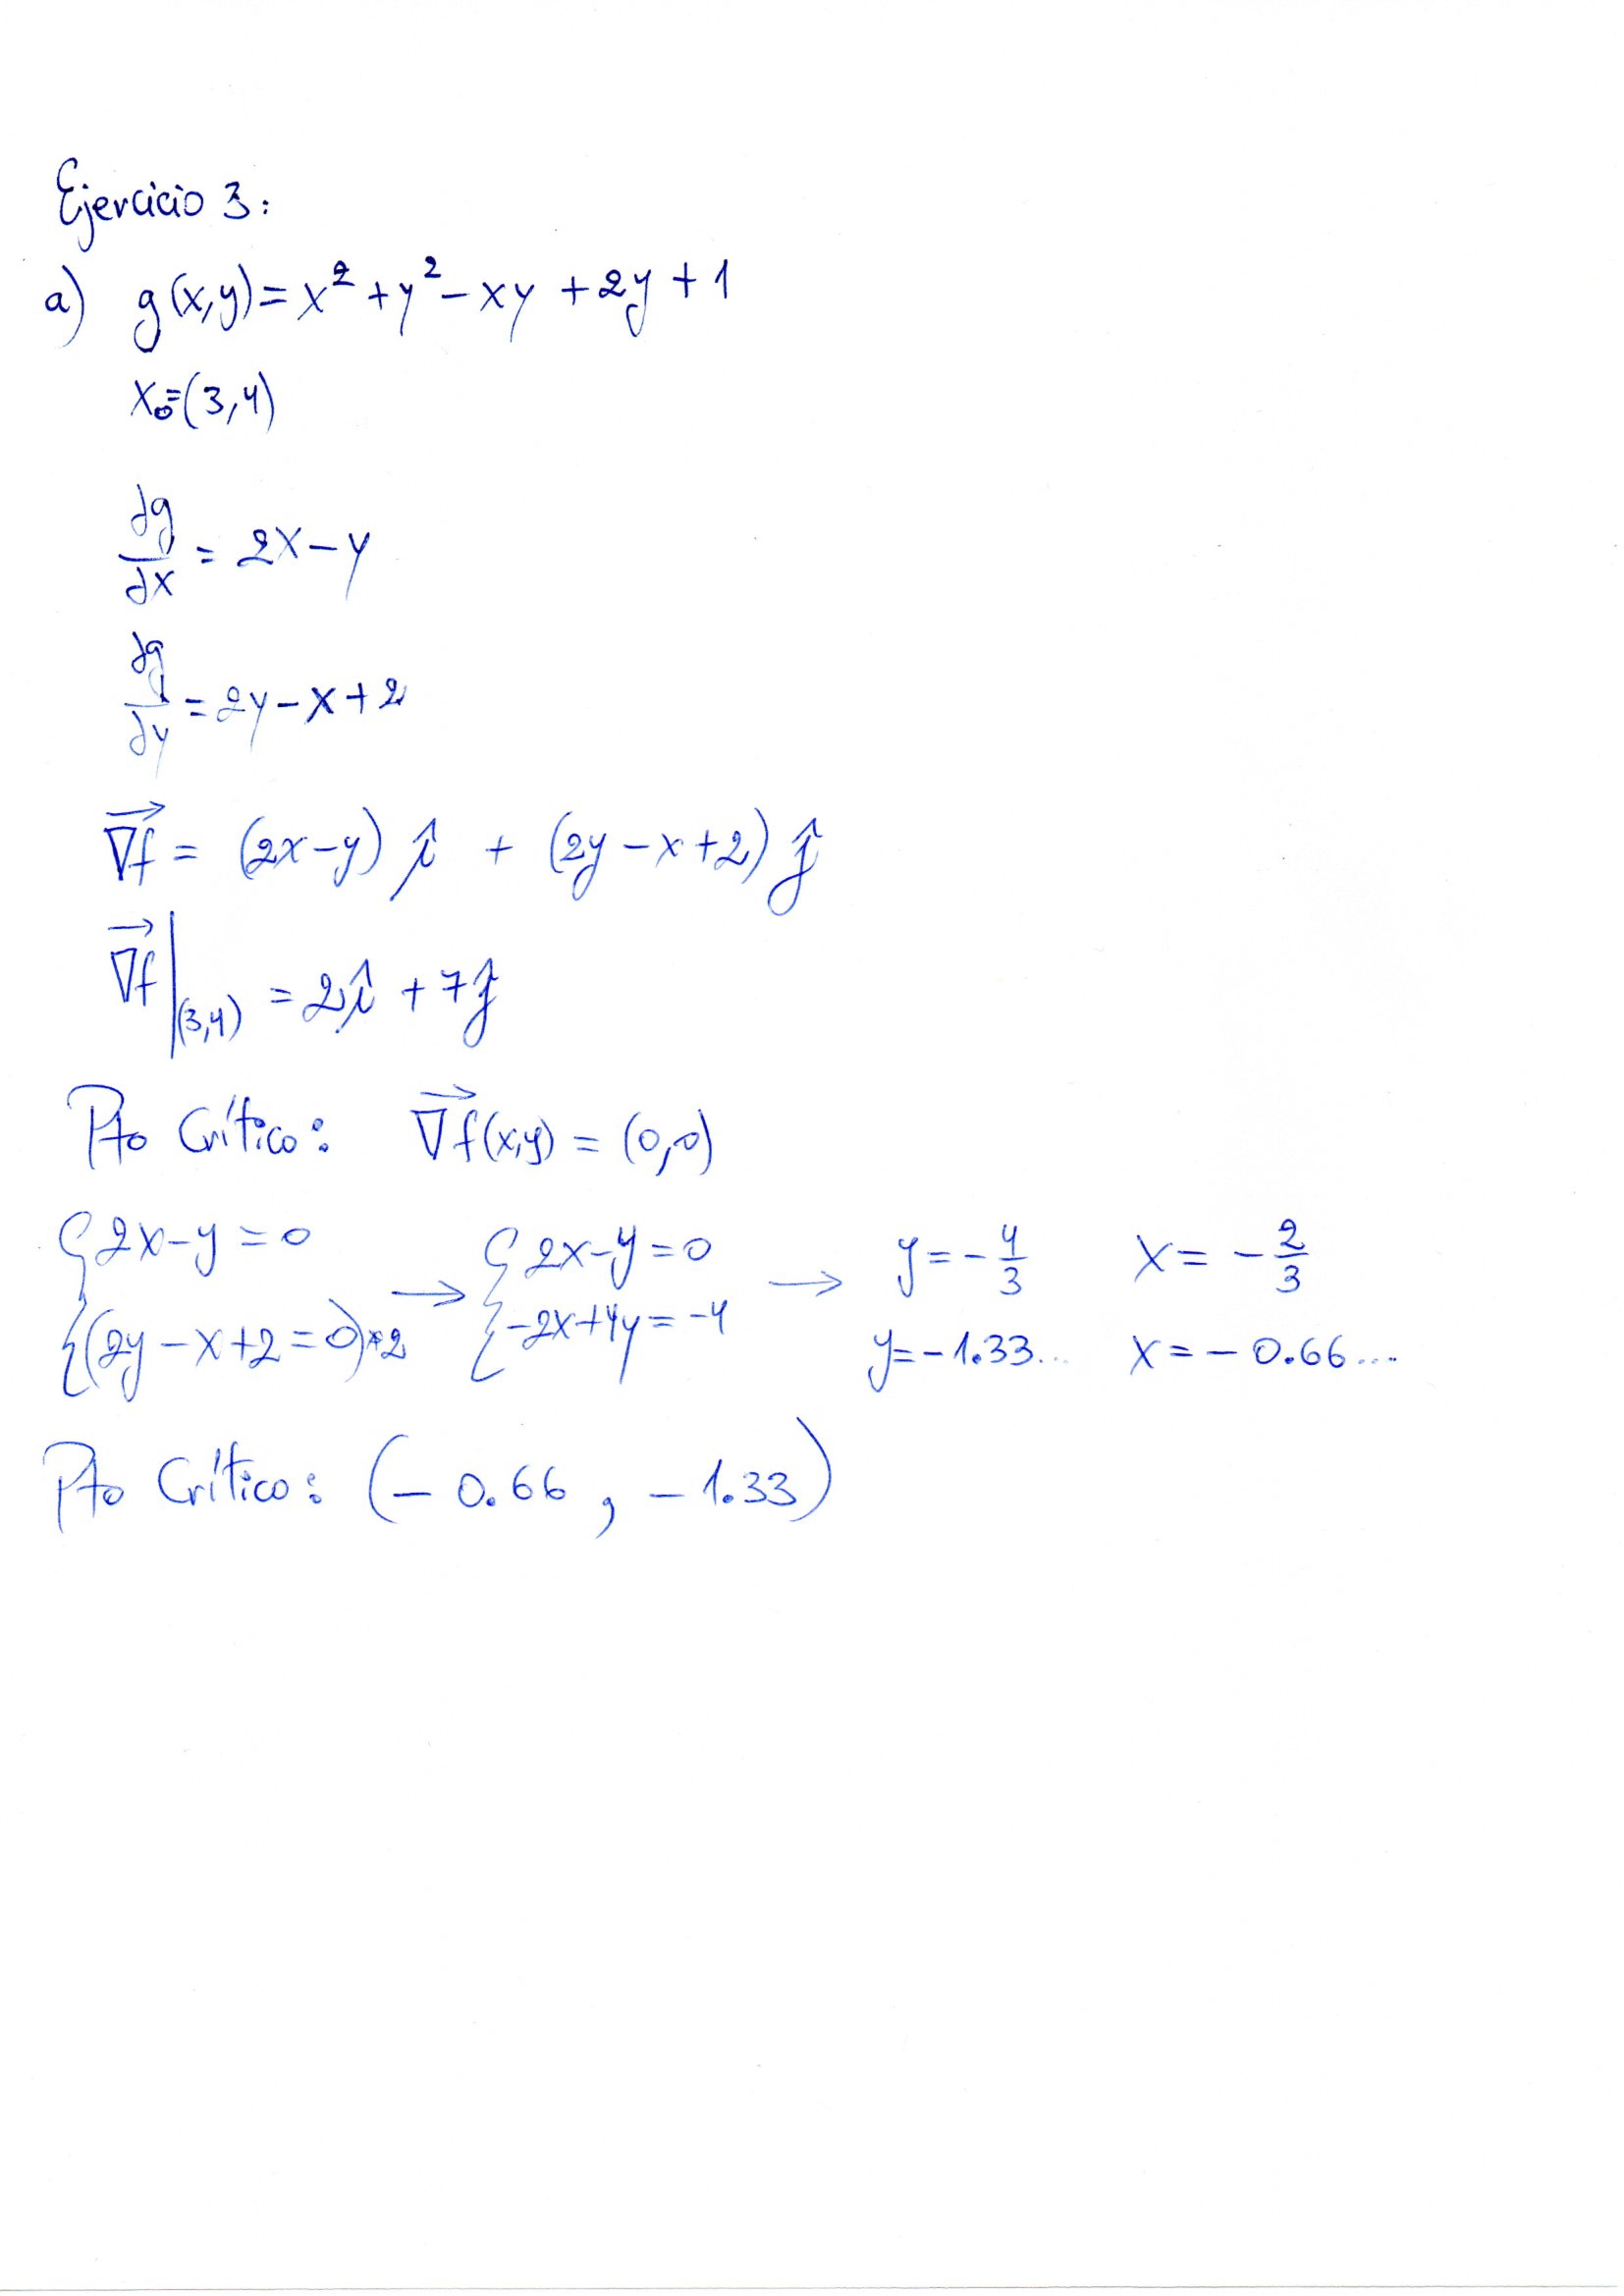 Ejercicio 3:
a) g(x,y) = x² + y² - xy + 2y + 1
x₀=(3,4)
∂g/∂x = 2x - y
∂g/∂y = 2y - x + 2
∇f = (2x-y) î + (2y-x+2) ĵ
∇f |(3,4) = 2î + 7ĵ
Pto Crítico: ∇f(x,y) = (0,0)
{ 2x-y=0 { 2x-y=0 y=-4/3 x=-2/3
{ (2y-x+2=0)*2 → { -2x+4y=-4 → y=-1.33... x=-0.66...
Pto Crítico: (-0.66, -1.33)